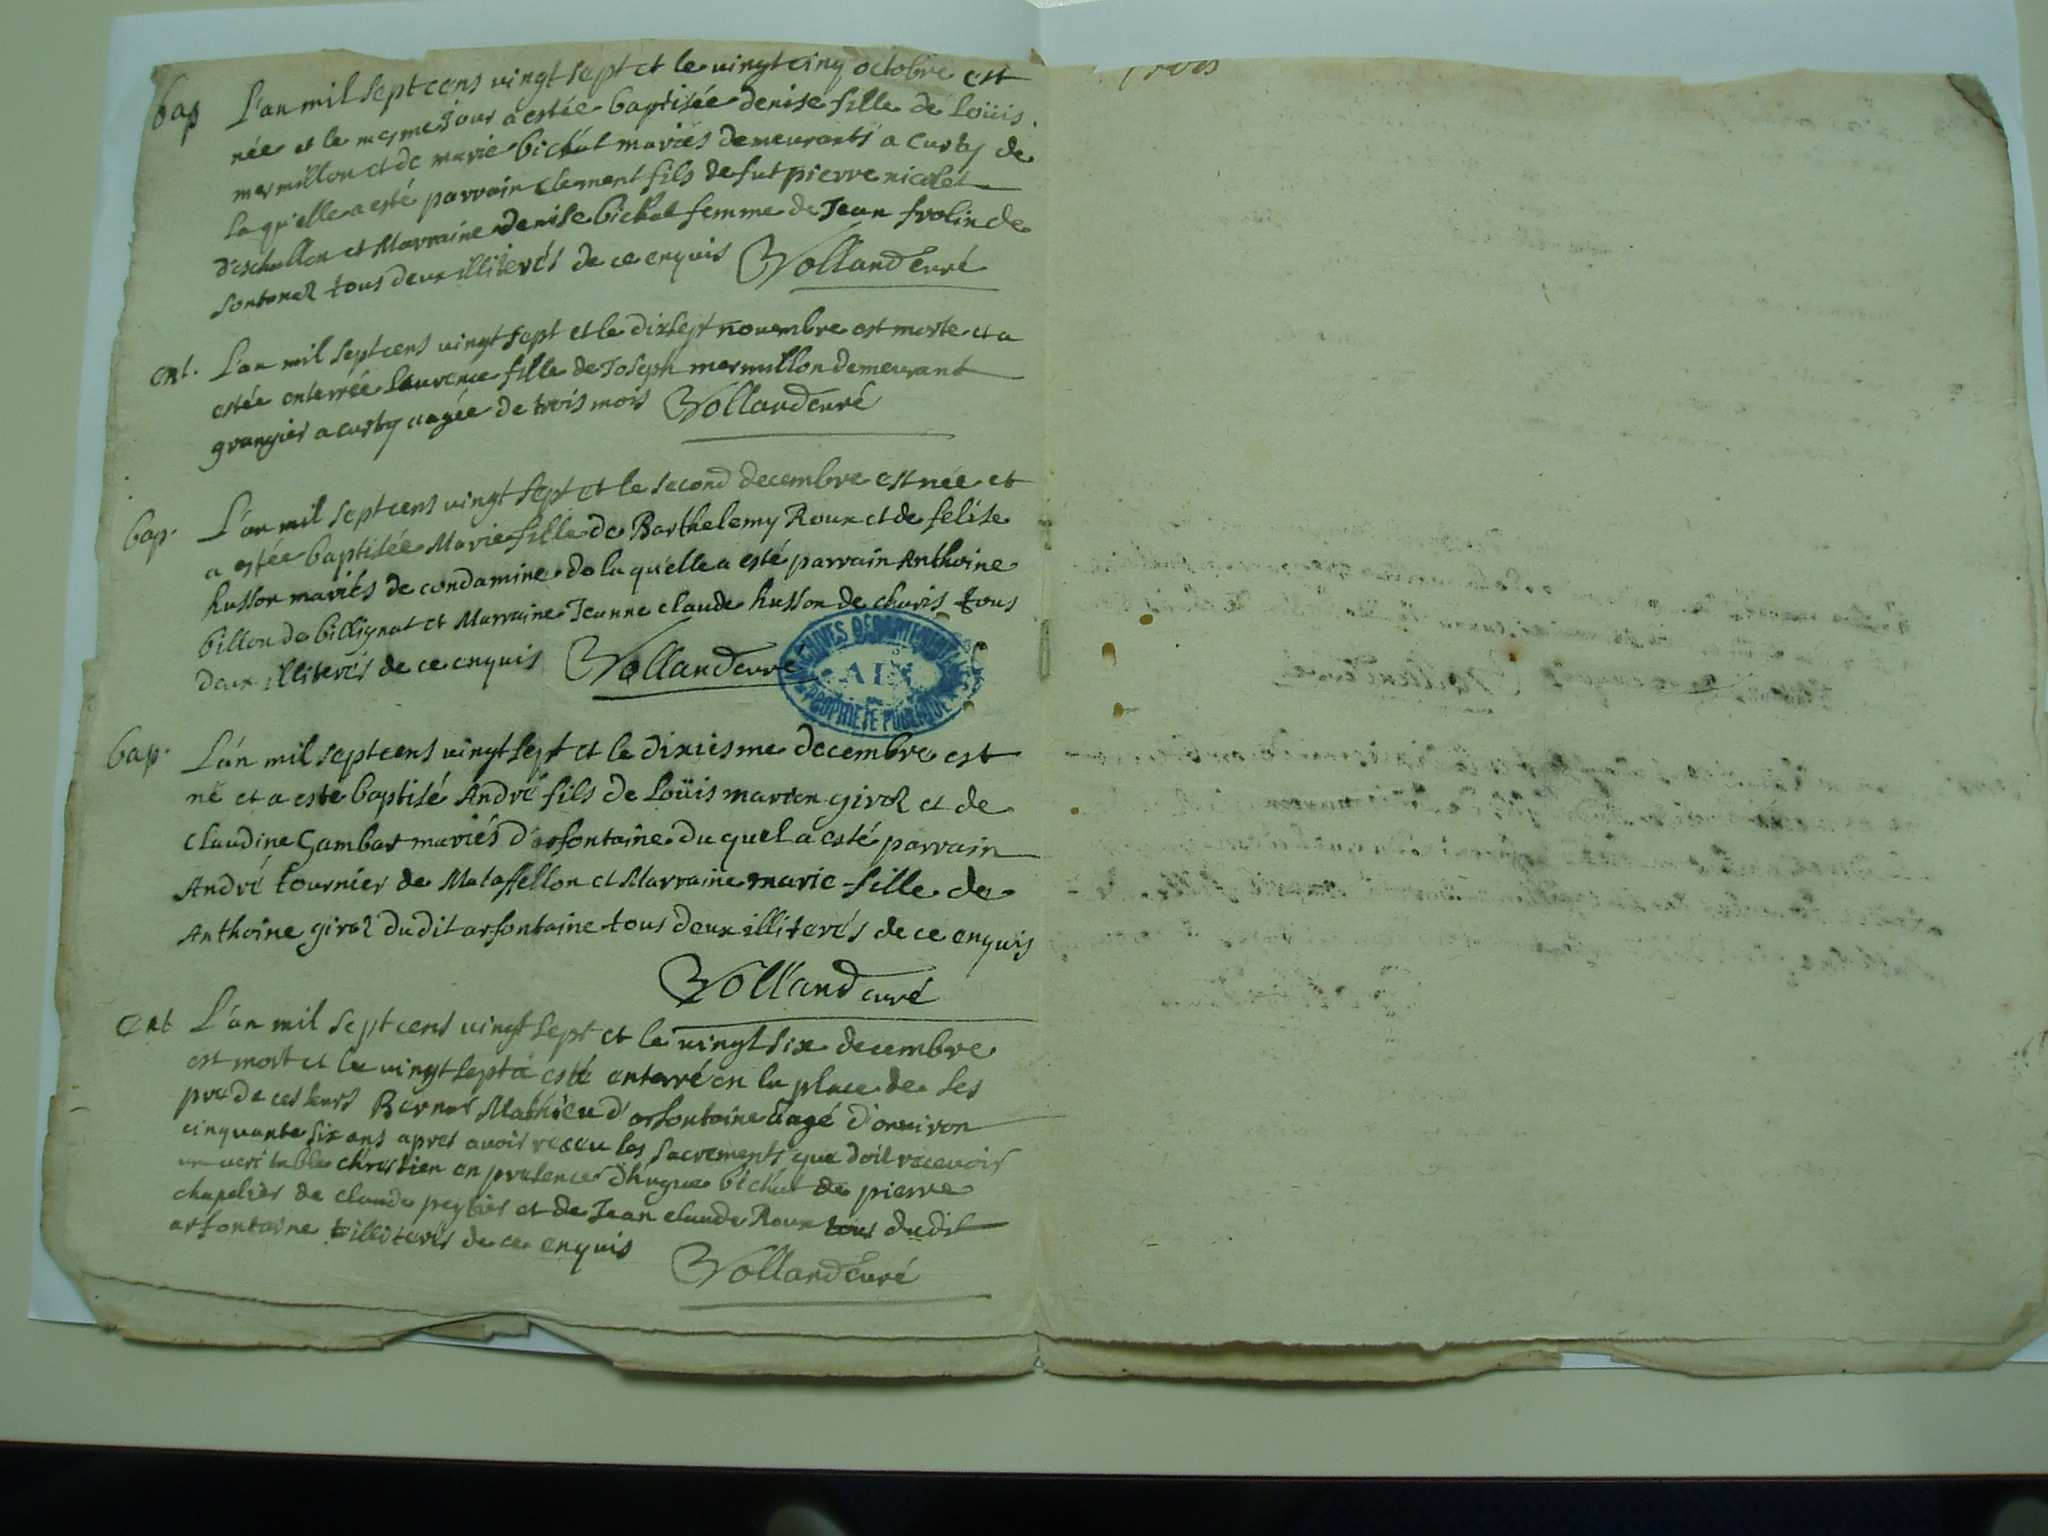 bap
L'an mil sept cens vingt sept et le vingt cinq octobre est
née et le mesme jour a estée baptisée denise fille de Loüis
mermillon et de marie bichat mariés demeurants a Curty de
la qu'elle a esté parrain Clement fils de fut pierre nicolet
d'eschallon et Marraine denise bichat femme de Jean frolin de
sontonax tous deux illiterés de ce enquis Volland Curé
ent. L'an mil sept cens vingt sept et le dix sept nouembre est morte et a
estée enterrée Laurence fille de Joseph mermillon demeurant
grangier a curty aagée de trois mois Volland curé
bap. L'an mil sept cens vingt sept et le second decembre est née et
a estée baptisée Marie fille de Barthelemy Roux et de felise
husson mariés de condamine de la qu'elle a esté parrain Anthoine
billon de billignat et Marraine Jeanne claude husson de charix tous
deux illiterés de ce enquis Volland curé
ARCHIVES DÉPARTEMENTALES
AIN
PROPRIÉTÉ PUBLIQUE
bap. L'an mil sept cens vingt sept et le dixiesme decembre est
né et a esté baptisé André fils de Loüis marion girod et de
Claudine Gambar mariés d'orfontaine du quel a esté parrain
André tournier de Mataffellon et Marraine marie fille de
Anthoine girod dudit orfontaine tous deux illiterés de ce enquis
Volland curé
ent L'an mil sept cens vingt sept et le vingt six decembre
est mort et le vingt sept a esté enterré en la place de ses
predecesseurs Bernar Mathieu d'orfontaine aagé d'enuiron
cinquante six ans apres auoir receu les sacrements que doit receuoir
un veritable chrestien en presence d'hugue bichat de pierre
chapelier de claude et de Jean claude Roux tous dudit
orfontaine illiterés de ce enquis
Volland Curé